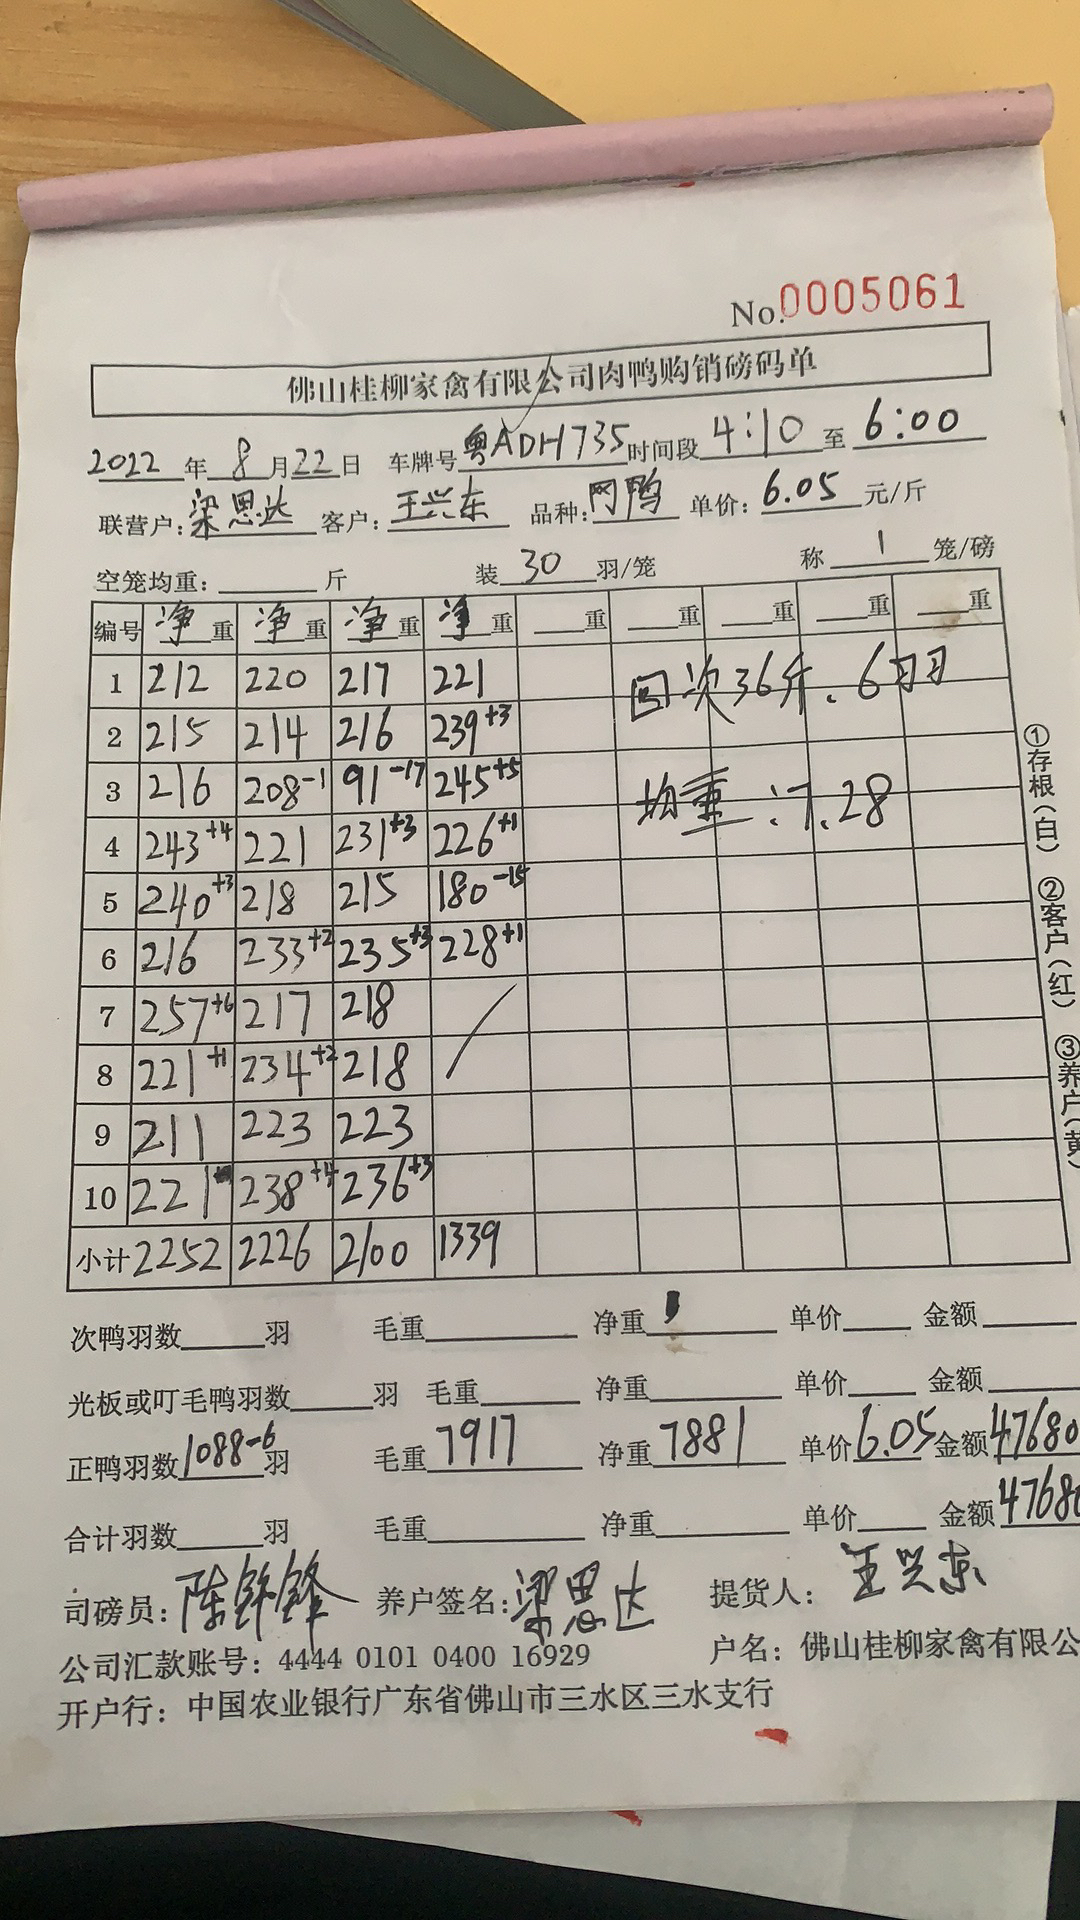 No.0005061
佛山桂柳家禽有限公司肉鸭购销磅码单
2022年8月22日 车牌号粤ADH735时间段4:10至6:00
联营户:梁思达 客户:王兴东 品种:网鸭 单价:6.05元/斤
空笼均重:斤 装30羽/笼 称1笼/磅
编号 净重 净重 净重 净重 重 重 重 重 重
1 212 220 217 221 回次36斤.6羽
2 215 214 216 239+3
3 216 208-1 91-17 245+5 均重:7.28
4 243+4 221 231+3 226+1
5 240+3 218 215 180-15
6 216 233+2 235+3 228+1
7 257+6 217 218
8 221+1 234+2 218
9 211 223 223
10 221 238+4 236+3
小计 2252 2226 2100 1339
①存根(白) ②客户(红) ③养户(黄)
次鸭羽数羽 毛重 净重 单价 金额
光板或叮毛鸭羽数羽 毛重 净重 单价 金额
正鸭羽数1088-6羽 毛重7917 净重7881 单价6.05金额47680
合计羽数羽 毛重 净重 单价 金额47680
司磅员:陈锌锋 养户签名:梁思达 提货人:王兴东
公司汇款账号:4444 0101 0400 16929 户名:佛山桂柳家禽有限公
开户行:中国农业银行广东省佛山市三水区三水支行